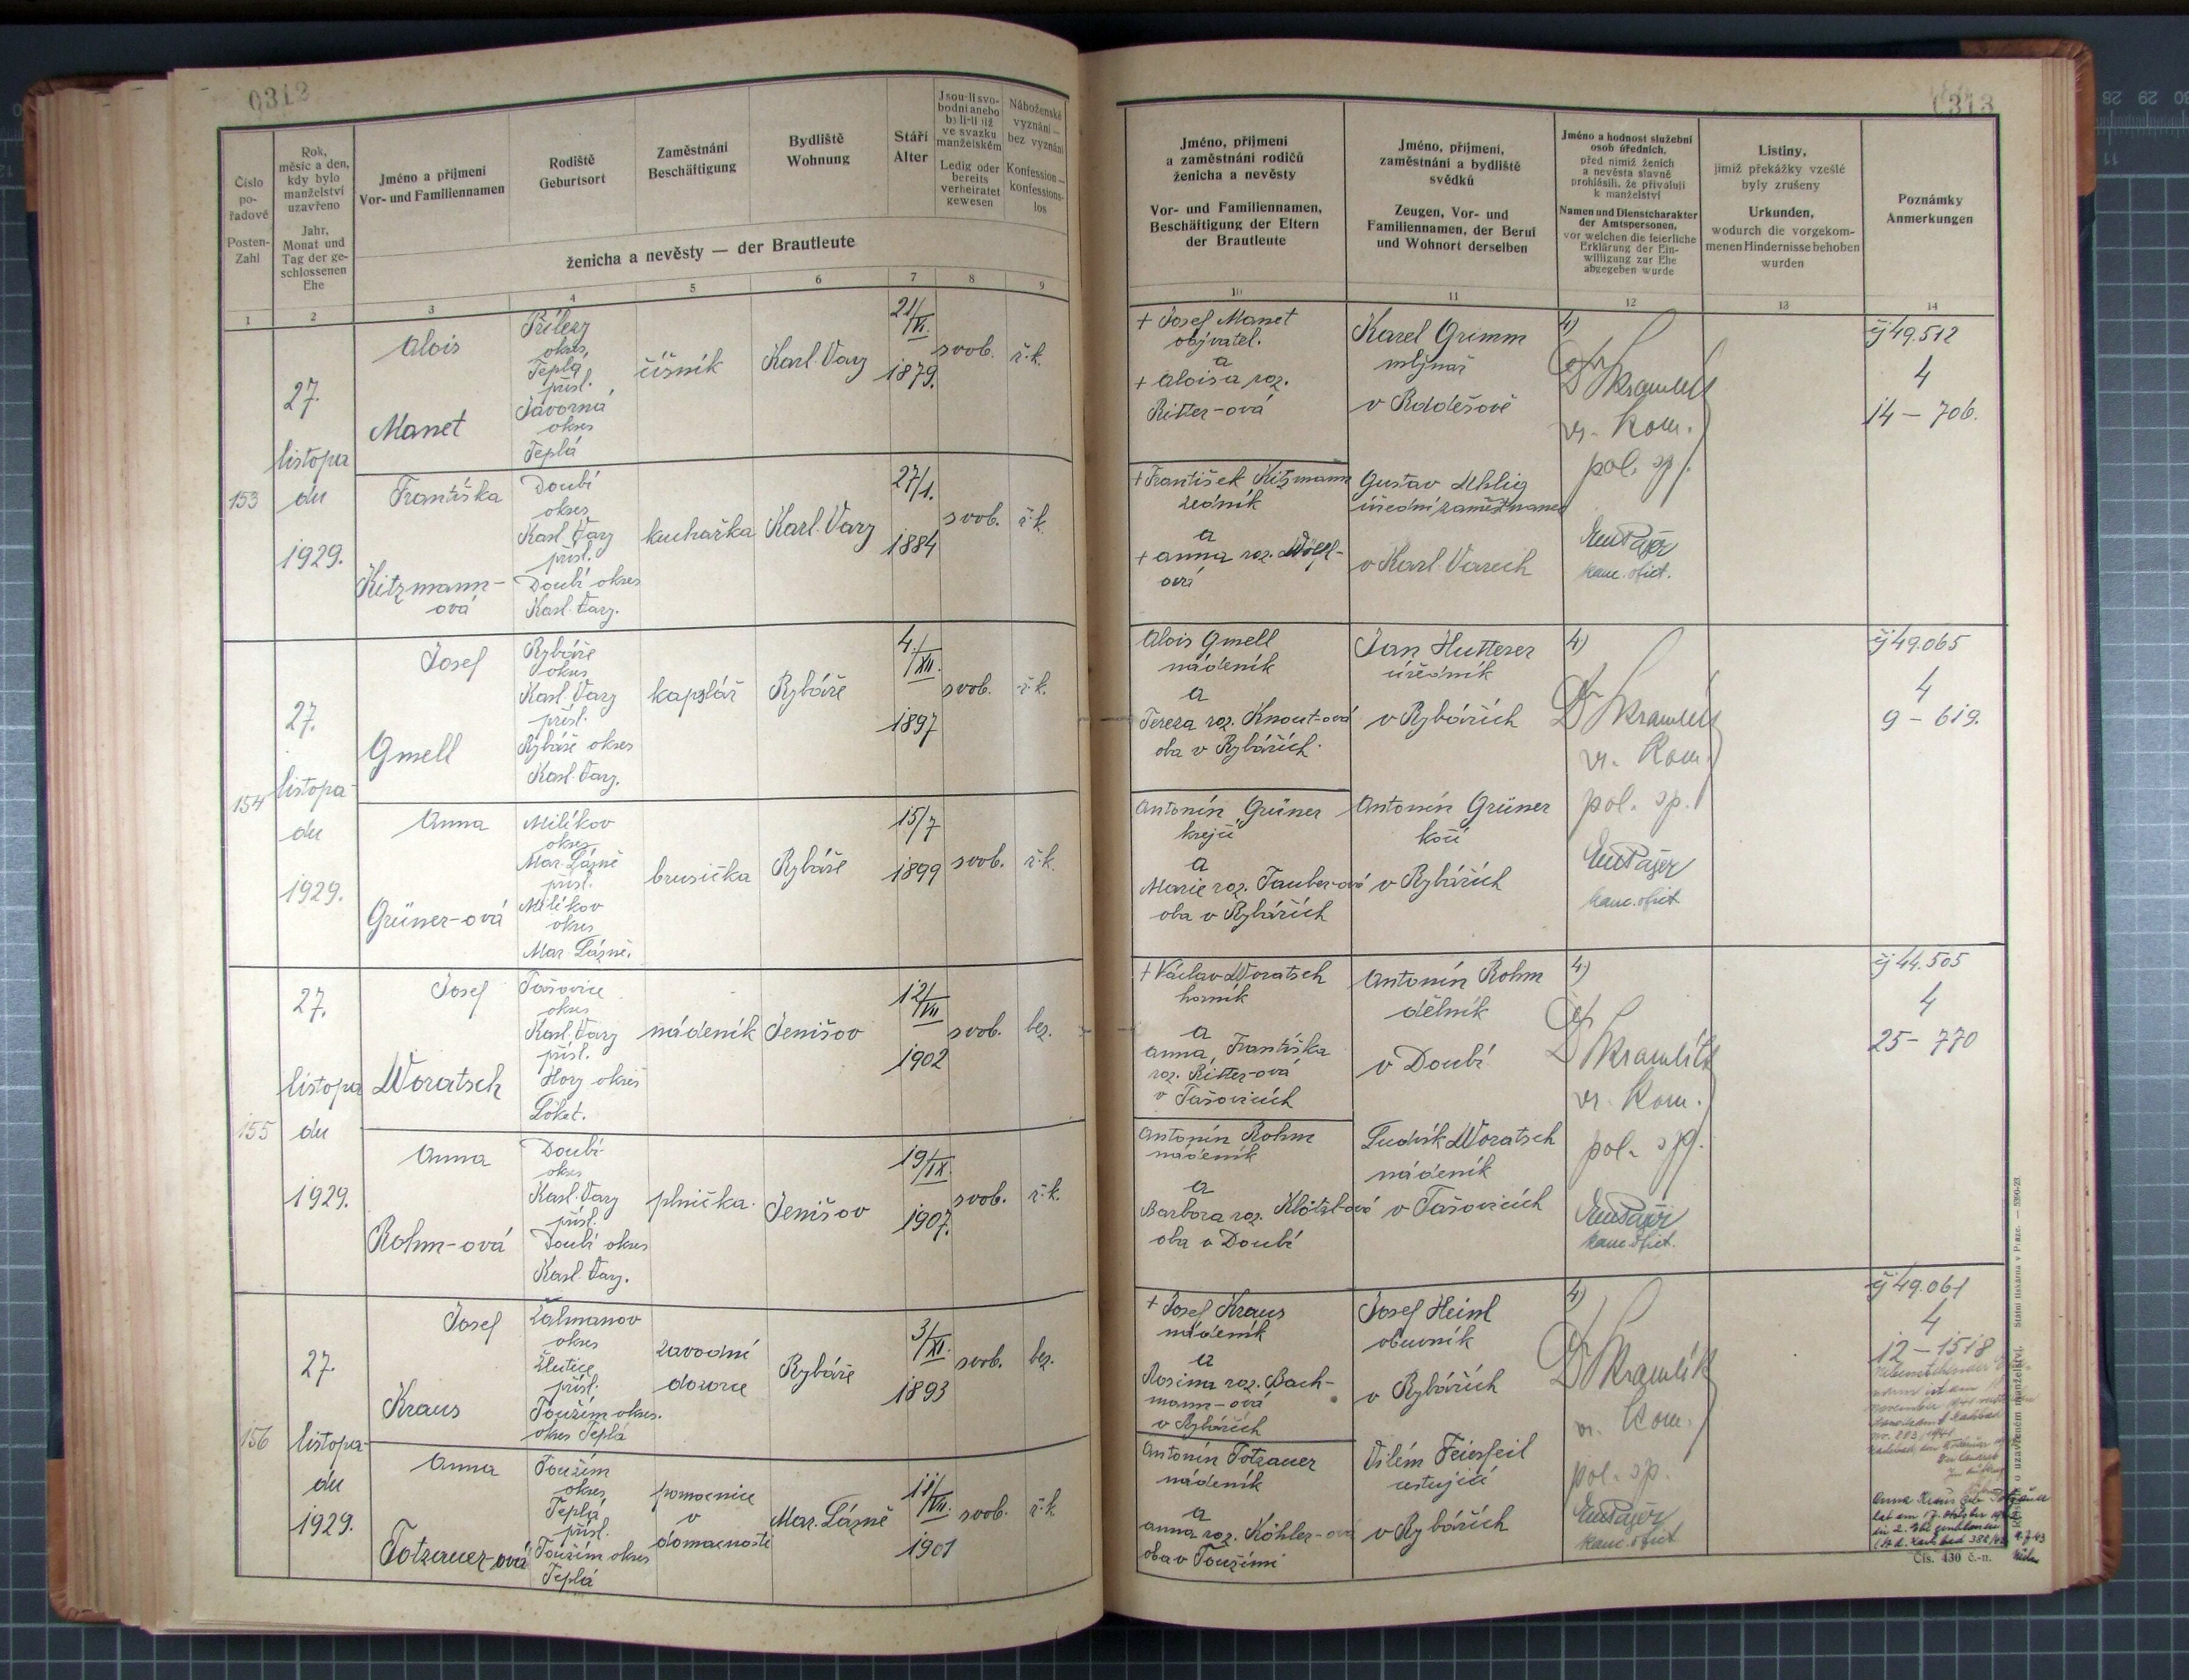 0313
Číslo
po-
řadové
Posten-
Zahl
Rok,
měsíc a den,
kdy bylo
manželství
uzavřeno
Jahr,
Monat und
Tag der ge-
schlossenen
Ehe
Jméno a příjmení
Vor- und Familiennamen
Rodiště
Geburtsort
Zaměstnání
Beschäftigung
Bydliště
Wohnung
Stáří
Alter
Jsou-li svo-
bodni anebo
byli-li již
ve svazku
manželském
Ledig oder
bereits
verheiratet
gewesen
Náboženské
vyznání —
bez vyznání
Konfession —
konfessions-
los
ženicha a nevěsty — der Brautleute
1
2
3
4
5
6
7
8
9
153
27.
listopa
du
1929.
Alois
Manet
Přílezy
okres
Teplá
přísl.
Javorná
okres
Teplá
číšník
Karl. Vary
21/VI.
1879.
svob.
ř.k.
Františka
Kitzmann-
ová
Doubí
okres
Karl. Vary
přísl.
Doubí okres
Karl. Vary.
kuchařka
Karl. Vary
27/1.
1884
svob.
ř.k.
154
27.
listopa-
du
1929.
Josef
Gmell
Rybáře
okres
Karl. Vary
přísl.
Rybáře okres
Karl. Vary.
kapslář
Rybáře
4./XII.
1897
svob.
ř.k.
Anna
Grüner-ová
Milíkov
okres
Mar. Lázně
přísl.
Milíkov
okres
Mar. Lázně.
brusička
Rybáře
15/7
1899
svob.
ř.k.
155
27.
listopa
du
1929.
Josef
Woratsch
Tašovice
okres
Karl. Vary
přísl.
Hory okres
Loket.
nádeník
Jenišov
12/VII
1902
svob.
bez.
Anna
Rohm-ová
Doubí
okres
Karl. Vary
přísl.
Doubí okres
Karl. Vary.
plnička.
Jenišov
19/IX.
1907.
svob.
ř.k.
156
27.
listopa-
du
1929.
Josef
Kraus
Žalmanov
okres
Žlutice
přísl.
Toužim okres.
okres Teplá
závodní
dozorce
Rybáře
3/XI.
1893
svob.
bez.
Anna
Totzauer-ová
Toužim
okres
Teplá
přísl.
Toužim okres
Teplá
pomocnice
v
domácnosti
Mar. Lázně
11/VII.
1901
svob.
ř.k.
0313
Jméno, příjmení
a zaměstnání rodičů
ženicha a nevěsty
Vor- und Familiennamen,
Beschäftigung der Eltern
der Brautleute
Jméno, příjmení,
zaměstnání a bydliště
svědků
Zeugen, Vor- und
Familiennamen, der Beruf
und Wohnort derselben
Jméno a hodnost služební
osob úředních,
před nimiž ženich
a nevěsta slavně
prohlásili, že přivolují
k manželství
Namen und Dienstcharakter
der Amtspersonen,
vor welchen die feierliche
Erklärung der Ein-
willigung zur Ehe
abgegeben wurde
Listiny,
jimiž překážky vzešlé
byly zrušeny
Urkunden,
wodurch die vorgekom-
menen Hindernisse behoben
wurden
Poznámky
Anmerkungen
10
11
12
13
14
+ Josef Manet
obyvatel.
a
+ Aloisa roz.
Ritter-ová
Karel Grimm
mlynář
v Radošově
4)
vr. kom.
pol. sp.
čj 49.512
4
14 – 706.
+ František Kitzmann
zedník
a
+ Anna roz. Wölfl-
ová
Gustav Uhlig
úřední zaměstnanec
v Karl. Varech
kanc. ofict.
Alois Gmell
nádeník
a
Tereza roz. Knout-ová
oba v Rybářích.
Jan Hutterer
úředník
v Rybářích
4)
vr. kom.
pol. sp.
čj 49.065
4
9 – 619.
Antonín Grüner
krejčí
a
Marie roz. Tauber-ová
oba v Rybářích
Antonín Grüner
kočí
v Rybářích
kanc. ofict
+ Václav Woratsch
horník
a
Anna, Františka
roz. Ritter-ová
v Tašovicích
Antonín Rohm
dělník
v Doubí
4)
vr. kom.
pol. sp.
čj 44.505
4
25 – 770
Antonín Rohm
nádeník
a
Barbora roz. Klötzl-ová
oba v Doubí
Ludvík Woratsch
nádeník
v Tašovicích
kanc. ofict.
+ Josef Kraus
nádeník
a
Rosina roz. Bach-
mann-ová
v Rybářích
Josef Heinl
obuvník
v Rybářích
4)
vr. kom.
pol. sp.
čj 49.061
4
12 – 1518
Antonín Totzauer
nádeník
a
Anna roz. Köhler-ová
oba v Toužimi
Vilém Feierfeil
cestující
v Rybářích
kanc. ofict
Anna Kraus geb. Totzauer
hat am 17. Oktober
die 2. Ehe geschlossen
Karlsbad 382/42
o uzavřeném manželství. Státní tiskárna v Praze. — 5390-23
Čís. 430 č.-n.